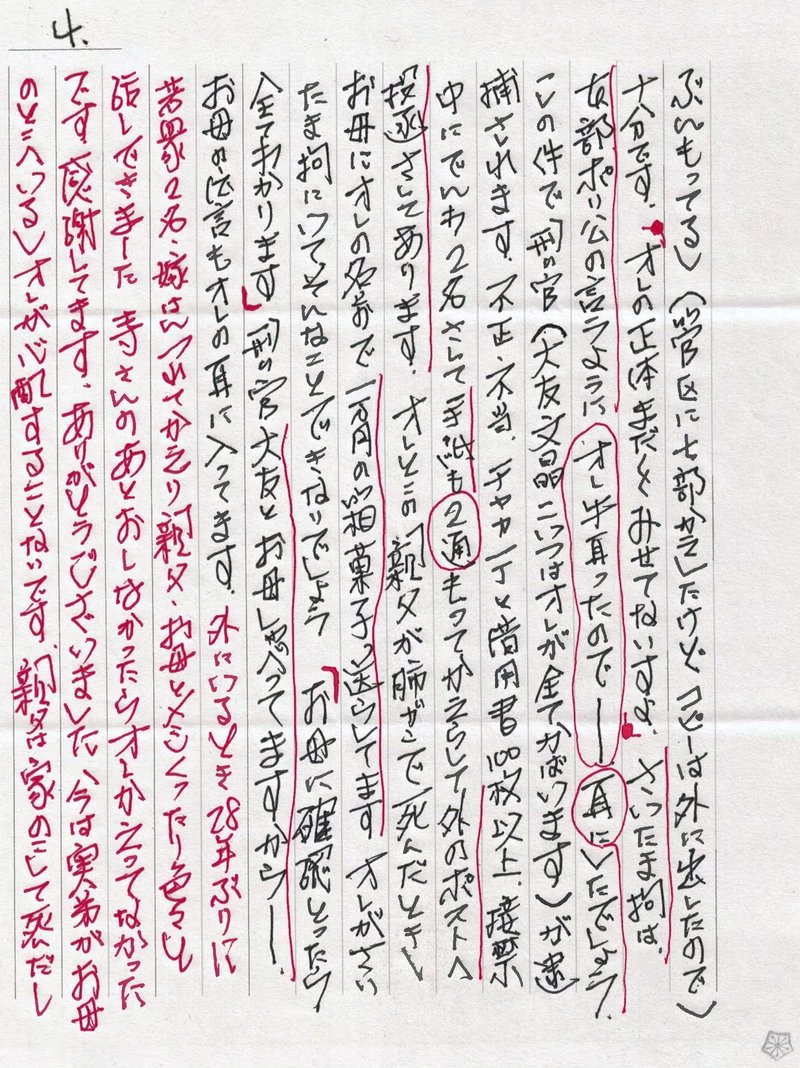 4.
ぶんもってる)(管区に七部かえしたけどコピーは外に出したので)
十分です. オレの正体まだまだみせてないすよ. さいたま拘は.
友部ポリ公の言うように オレ牛耳ったので── 耳にいたでしょう.
この件で「刑ム官(大友文晶こいつはオレが全てかばいます)が逮
捕されます. 不正・不当. チャカ一丁と階用書100枚以上. 接禁
中にでんわ2名さして手紙も2通もってかえらして外のポストへ
投函さしてあります. オレとこの「親父が肺ガンで死んだときし
お母にオレの名前で一万円の箱菓子っ送らしてます オレがさい
たま拘にいてそんなことできないでしょう お母に確認とったら
全てわかります」「刑ム官大友とお母し会ってますから──.
お母の伝言もオレの耳に入ってます. 外にいるとき28年ぶりに
若衆2名・嫁はんつれてかえり「親父・お母とメシくったり色々と
話しできました 寺さんのあとおしなかったらオレかえってなかった
です. 感謝してます. ありがとうございました(今は実弟がお母
のとこへいる)オレが心配することないです.「親父は家のこして死だし